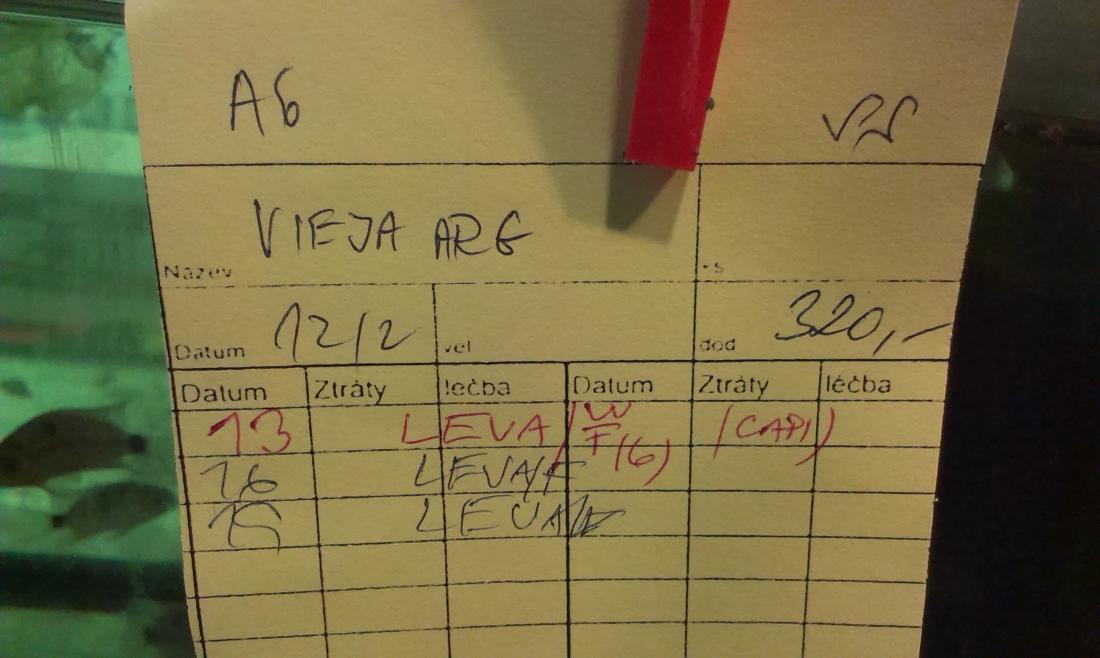 A6
VIEJA ARG
Název
Datum 12/2 vel dod 320,-
Datum Ztráty léčba Datum Ztráty léčba
13 LEVA / W/F (6) (CAPI)
16 LEVA/F
15 LEVA